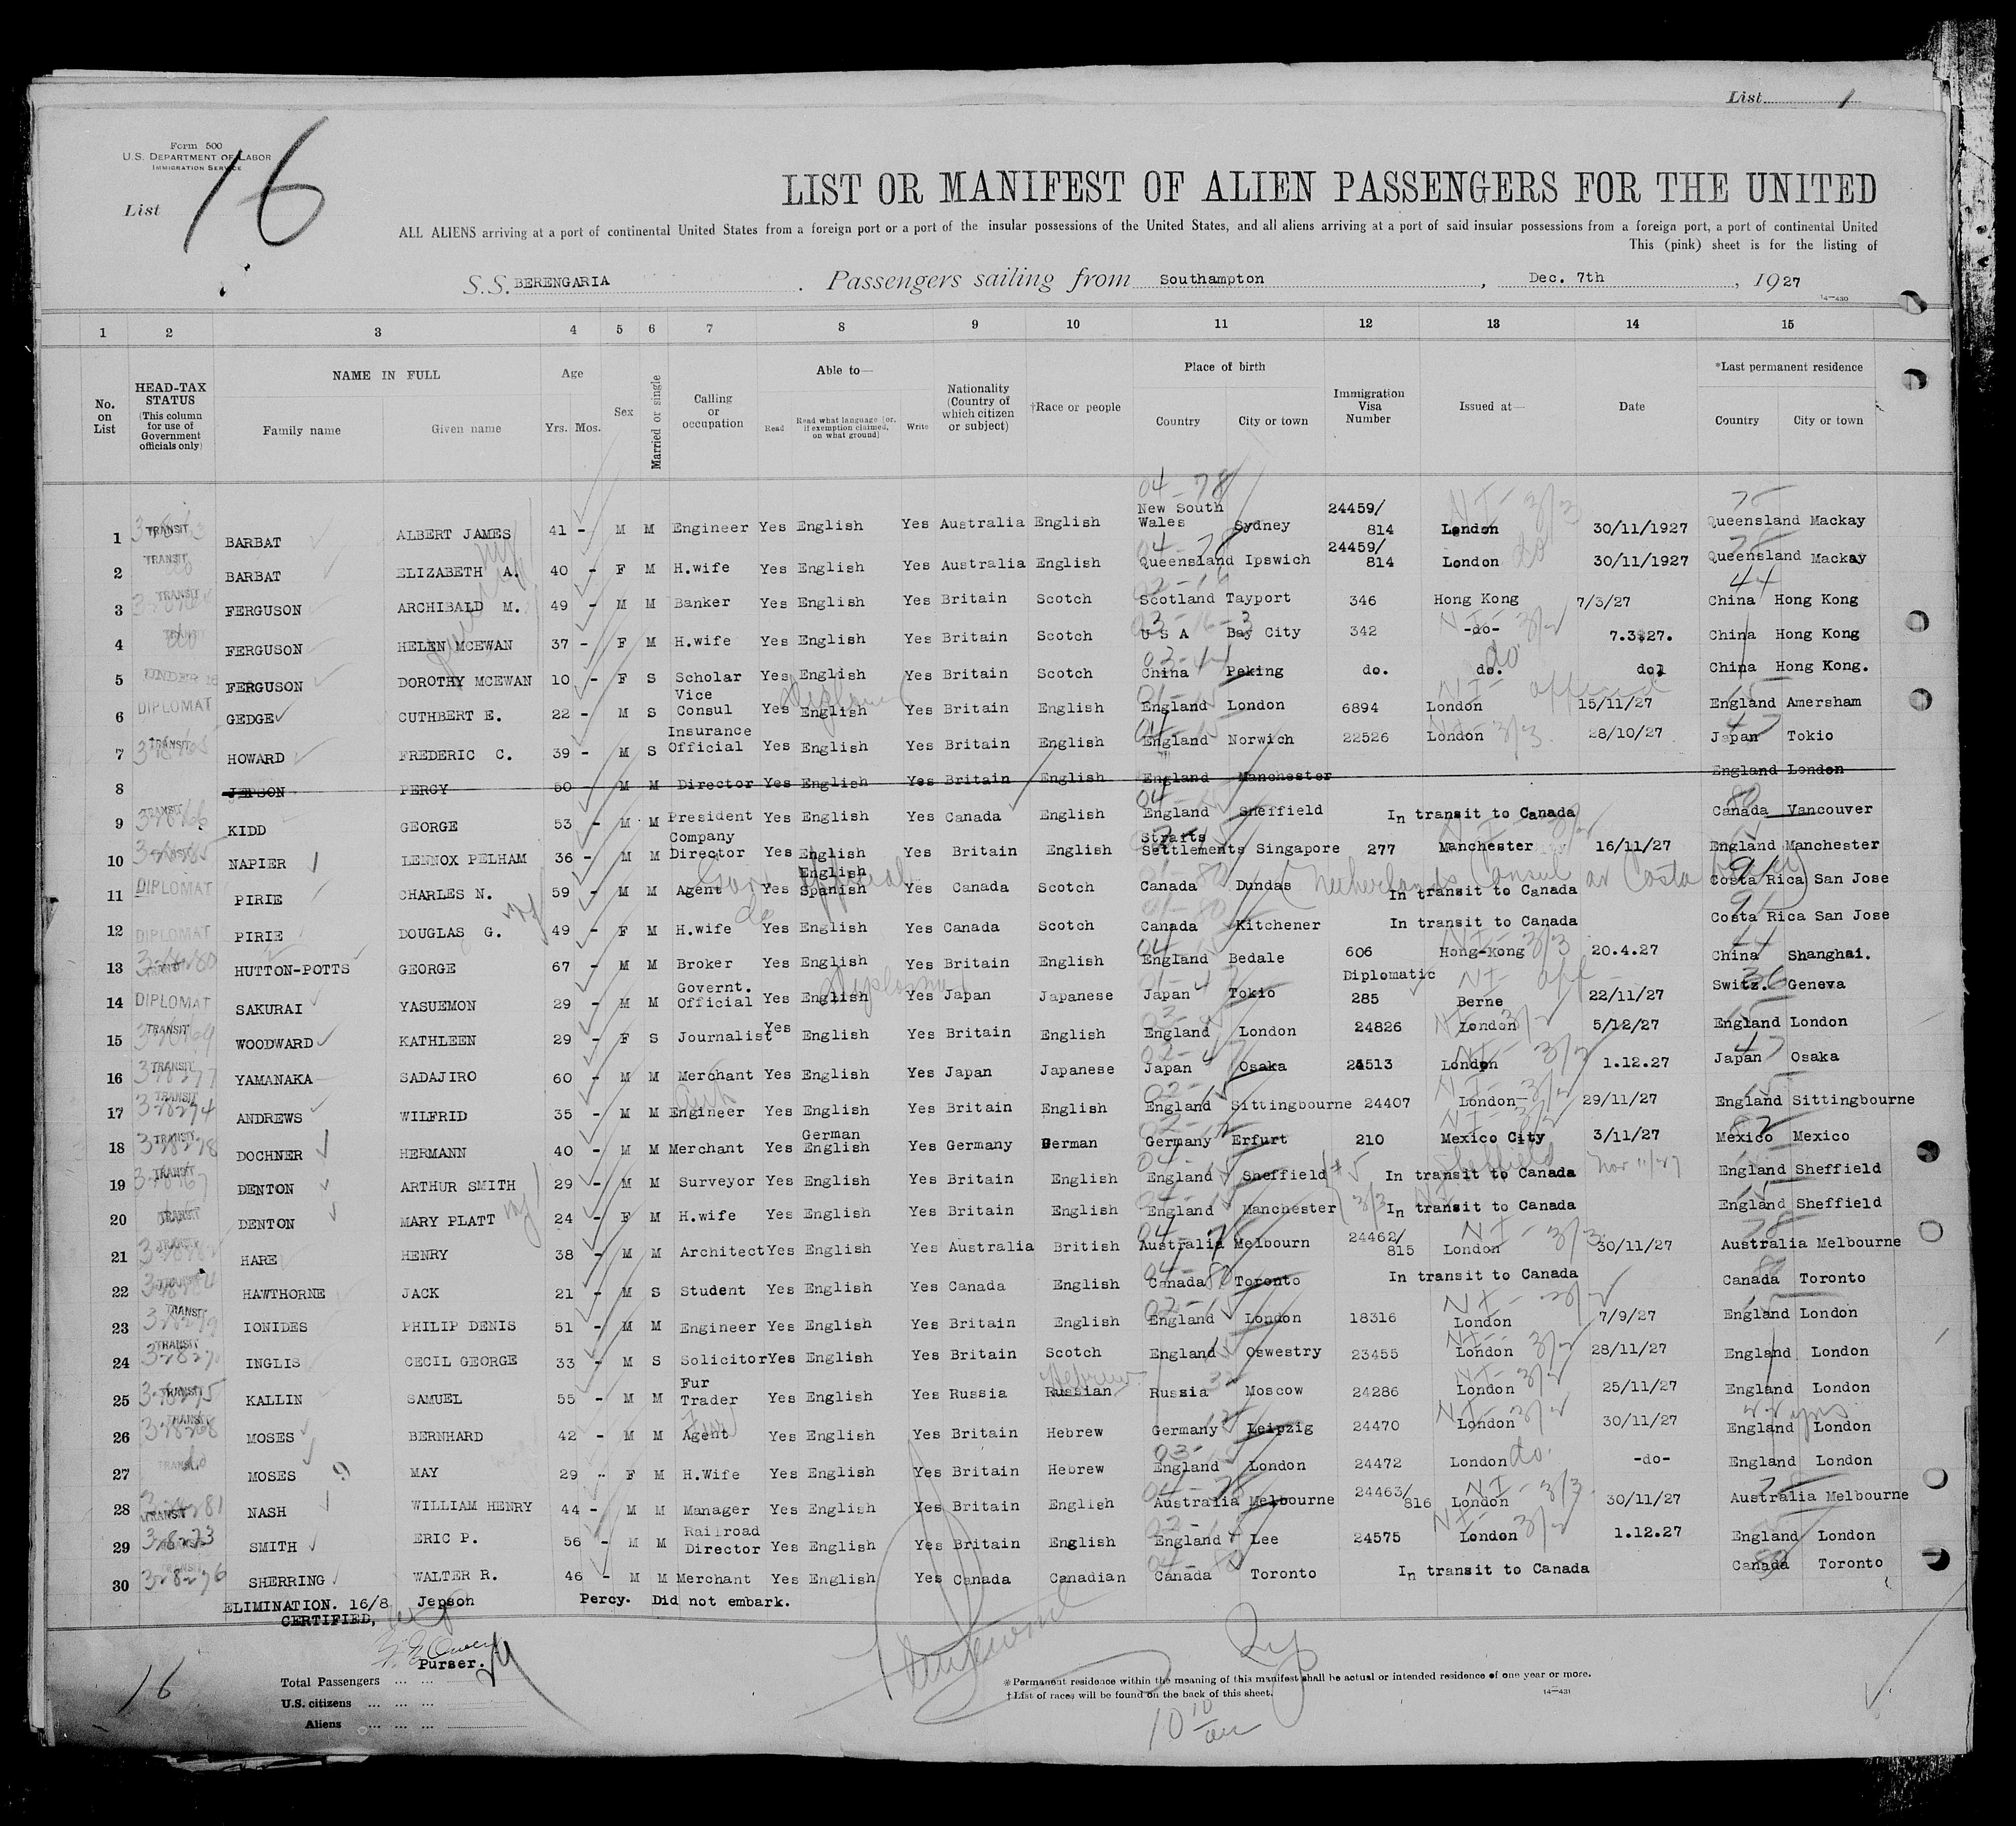 List 1
Form 500
U.S. DEPARTMENT OF LABOR
IMMIGRATION SERVICE
List 16
LIST OR MANIFEST OF ALIEN PASSENGERS FOR THE UNITED
ALL ALIENS arriving at a port of continental United States from a foreign port or a port of the insular possessions of the United States, and all aliens arriving at a port of said insular possessions from a foreign port, a port of continental United
This (pink) sheet is for the listing of
S.S. BERENGARIA. Passengers sailing from Southampton, Dec. 7th, 1927
14—430
1 2 3 4 5 6 7 8 9 10 11 12 13 14 15
No. on List
HEAD-TAX STATUS (This column for use of Government officials only)
NAME IN FULL
Family name Given name
Age
Yrs. Mos.
Sex
Married or single
Calling or occupation
Able to—
Read Read what language [or, if exemption claimed, on what ground] Write
Nationality (Country of which citizen or subject)
†Race or people
Place of birth
Country City or town
Immigration Visa Number
Issued at—
Date
*Last permanent residence
Country City or town
1 TRANSIT BARBAT ALBERT JAMES 41 - M M Engineer Yes English Yes Australia English New South Wales Sydney 24459/814 London 30/11/1927 Queensland Mackay
2 TRANSIT BARBAT ELIZABETH A. 40 - F M H.wife Yes English Yes Australia English Queensland Ipswich 24459/814 London do 30/11/1927 Queensland Mackay
3 TRANSIT FERGUSON ARCHIBALD M. 49 - M M Banker Yes English Yes Britain Scotch Scotland Tayport 346 Hong Kong 7/3/27 China Hong Kong
4 FERGUSON HELEN MCEWAN 37 - F M H.wife Yes English Yes Britain Scotch U S A Bay City 342 -do- 7.3.27. China Hong Kong
5 UNDER 16 FERGUSON DOROTHY MCEWAN 10 - F S Scholar Yes English Yes Britain Scotch China Peking do. do. do. China Hong Kong.
6 DIPLOMAT GEDGE CUTHBERT E. 22 - M S Vice Consul Yes English Yes Britain English England London 6894 London 15/11/27 England Amersham
7 TRANSIT HOWARD FREDERIC C. 39 - M S Insurance Official Yes English Yes Britain English England Norwich 22526 London 28/10/27 Japan Tokio
8 JEPSON PERCY 50 - M M Director Yes English Yes Britain English England Manchester England London
9 TRANSIT KIDD GEORGE 53 - M M President Yes English Yes Canada English England Sheffield In transit to Canada Canada Vancouver
10 NAPIER LENNOX PELHAM 36 - M M Company Director Yes English Yes Britain English Straits Settlements Singapore 277 Manchester 16/11/27 England Manchester
11 DIPLOMAT PIRIE CHARLES N. 59 - M M Agent Yes English Spanish Yes Canada Scotch Canada Dundas In transit to Canada Costa Rica San Jose
12 DIPLOMAT PIRIE DOUGLAS G. 49 - F M H.wife Yes English Yes Canada Scotch Canada Kitchener In transit to Canada Costa Rica San Jose
13 HUTTON-POTTS GEORGE 67 - M M Broker Yes English Yes Britain English England Bedale 606 Hong-Kong 20.4.27 China Shanghai.
14 DIPLOMAT SAKURAI YASUEMON 29 - M M Governt. Official Yes English Yes Japan Japanese Japan Tokio Diplomatic 285 Berne 22/11/27 Switz. Geneva
15 TRANSIT WOODWARD KATHLEEN 29 - F S Journalist Yes English Yes Britain English England London 24826 London 5/12/27 England London
16 TRANSIT YAMANAKA SADAJIRO 60 - M M Merchant Yes English Yes Japan Japanese Japan Osaka 24513 London 1.12.27 Japan Osaka
17 TRANSIT ANDREWS WILFRID 35 - M M Engineer Yes English Yes Britain English England Sittingbourne 24407 London 29/11/27 England Sittingbourne
18 TRANSIT DOCHNER HERMANN 40 - M M Merchant Yes German English Yes Germany German Germany Erfurt 210 Mexico City 3/11/27 Mexico Mexico
19 TRANSIT DENTON ARTHUR SMITH 29 - M M Surveyor Yes English Yes Britain English England Sheffield In transit to Canada England Sheffield
20 TRANSIT DENTON MARY PLATT 24 - F M H.wife Yes English Yes Britain English England Manchester In transit to Canada England Sheffield
21 TRANSIT HARE HENRY 38 - M M Architect Yes English Yes Australia British Australia Melbourn 24462/815 London 30/11/27 Australia Melbourne
22 HAWTHORNE JACK 21 - M S Student Yes English Yes Canada English Canada Toronto In transit to Canada Canada Toronto
23 TRANSIT IONIDES PHILIP DENIS 51 - M M Engineer Yes English Yes Britain English England London 18316 London 7/9/27 England London
24 TRANSIT INGLIS CECIL GEORGE 33 - M S Solicitor Yes English Yes Britain Scotch England Oswestry 23455 London 28/11/27 England London
25 TRANSIT KALLIN SAMUEL 55 - M M Fur Trader Yes English Yes Russia Russian Hebrew Russia Moscow 24286 London 25/11/27 England London
26 TRANSIT MOSES BERNHARD 42 - M M Fur Agent Yes English Yes Britain Hebrew Germany Leipzig 24470 London 30/11/27 England London
27 MOSES MAY 29 - F M H.Wife Yes English Yes Britain Hebrew England London 24472 London do. -do- England London
28 TRANSIT NASH WILLIAM HENRY 44 - M M Manager Yes English Yes Britain English Australia Melbourne 24463/816 London 30/11/27 Australia Melbourne
29 SMITH ERIC P. 56 - M M Railroad Director Yes English Yes Britain English England Lee 24575 London 1.12.27 England London
30 SHERRING WALTER R. 46 - M M Merchant Yes English Yes Canada Canadian Canada Toronto In transit to Canada Canada Toronto
ELIMINATION. 16/8 Jepson Percy. Did not embark.
CERTIFIED,
Purser.
16
Total Passengers ... ... ...
U.S. citizens ... ... ...
Aliens ... ... ...
*Permanent residence within the meaning of this manifest shall be actual or intended residence of one year or more.
†List of races will be found on the back of this sheet.
14—431